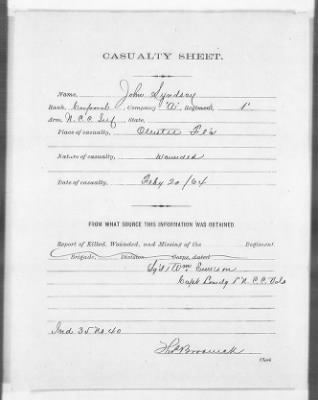 CASUALTY SHEET.
Name, John Lyndsay
Rank, Corporal Company "A", Regiment, 1"
Arm, N.C.C. Inf State,
Place of casualty, Olustee Fla
Nature of casualty, Wounded
Date of casualty, Feby 20/64
FROM WHAT SOURCE THIS INFORMATION WAS OBTAINED
Report of Killed, Wounded, and Missing of the Regiment
Brigade, Division Corps, dated
Wm
Capt Comdg 1" N.C.C. Vols
Ind 35 No 40
Clerk